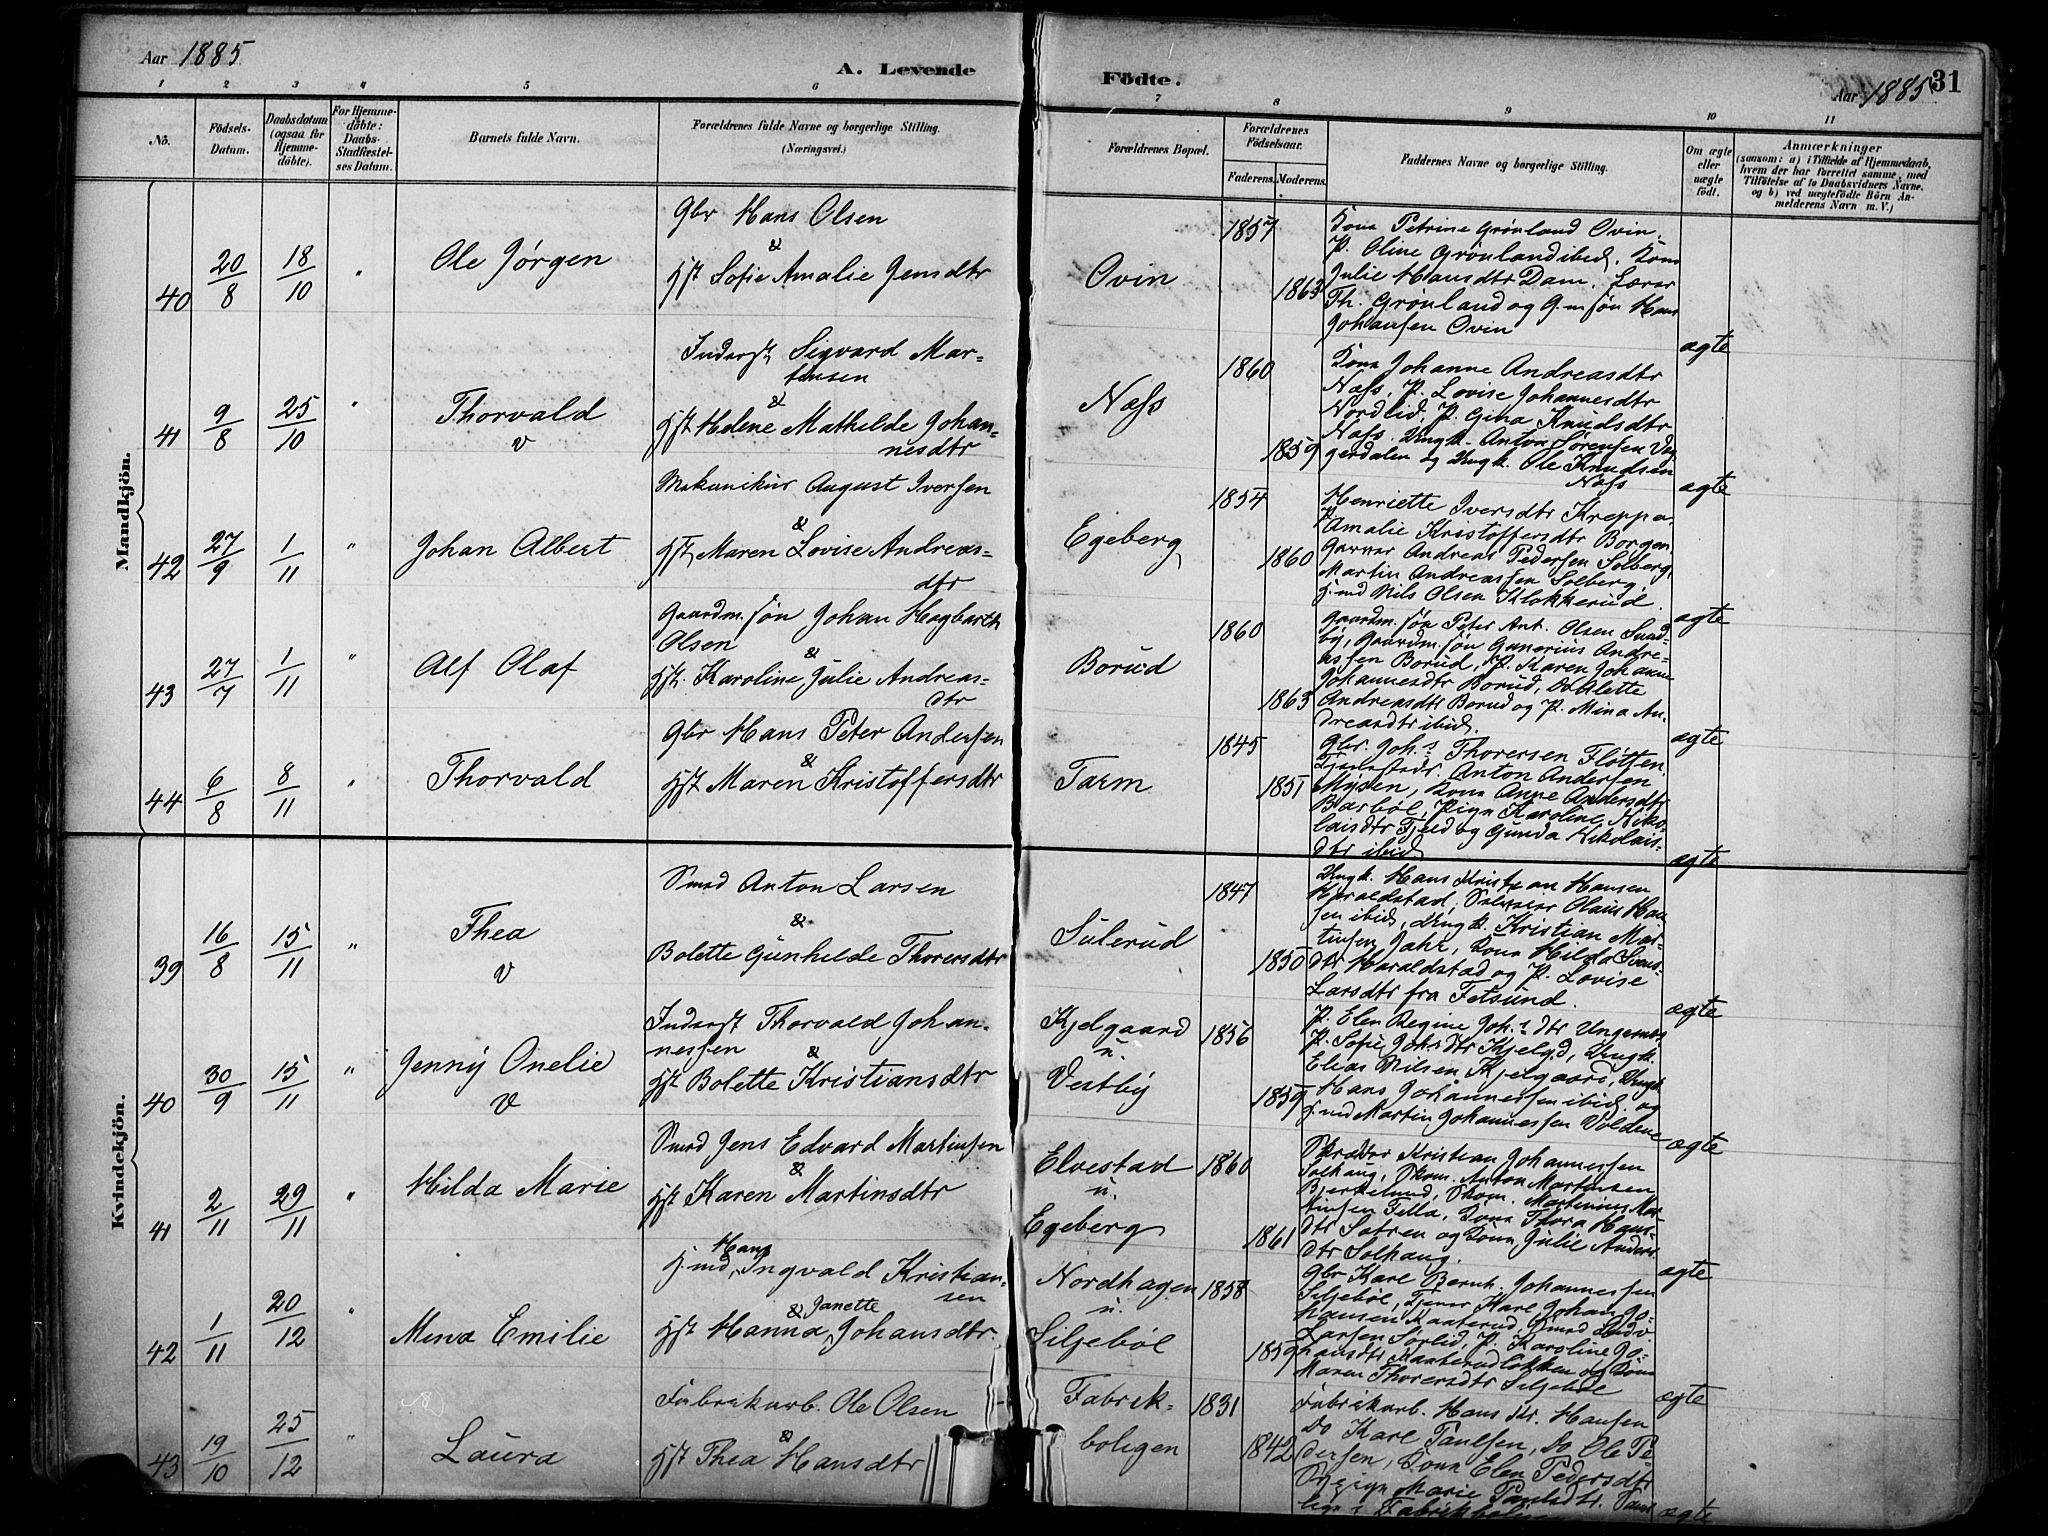 Aar 1885
A. Levende
Födte.
Aar 1885
31
1 2 3 4 5 6 7 8 9 10 11
No.
Födsels-
Datum.
Daabsdatum
(ogsaa for
Hjemme-
döbte).
For Hjemme-
döbte:
Daabs-
Stadfæstel-
ses Datum.
Barnets fulde Navn.
Forældrenes fulde Navne og borgerlige Stilling.
(Næringsvei.)
Forældrenes Bopæl.
Forældrenes
Födselsaar.
Faderens. Moderens.
Faddernes Navne og borgerlige Stilling.
Om ægte
eller
uægte
födt.
Anmærkninger
(saasom: a) i Tilfælde af Hjemmedaab,
hvem der har forrettet samme, med
Tilföielse af to Daabsvidners Navne,
og b) ved uægtefödte Börn An-
melderens Navn m. V.)
Mandkjön.
40 20/8 18/10 " Ole Jørgen
Gbr Hans Olsen
&
Hst Sofie Amalie Jensdtr
Ovin
1857
1863
Kona Petrine Grønland Ovin,
P. Oline Grønland ibid. Kona
Julie Hansdtr Dam, Lærer
Th. Grønland og G.m søn Hans
Johansen Ovin
ægte
41 9/8 25/10 " Thorvald
v
Inderst Sigvard Mar-
tinsen
&
Hst Helene Mathilde Johan-
nesdtr
Næss
1860
1859
Kona Johanne Andreasdtr
Næss, P. Lovise Johannesdtr
Nordlid, P. Gina Knudsdtr
Næss. Ungk. Anton Sørensen
og Ungk. Ole Knudsen
Næss
ægte
42 27/9 1/11 " Johan Albert
Mekanikus August Iversen
&
Hst Maren Lovise Andreas-
dtr
Egeberg
1854
1860
Henriette Iversdtr Kreppa,
P. Amalie Kristoffersdtr Borgen
Garver Andreas Pedersen Solberg,
Martin Andreassen Solberg,
Hmd Nils Olsen Klokkerud.
ægte
43 27/7 1/11 " Alf Olaf
Gaardm. søn Johan Hagbarth
Olsen
&
Hst. Karoline Julie Andreas-
dtr
Borud
1860
1863
Gaardm. søn Peter Ant. Olsen Sund-
by, Gaardm. søn Gunerius Andre-
assen Borud, P. Karen Johanne
Johannesdtr Borud, Do Alette
Andreasdtr Borud og P. Mina An-
dreasdtr ibid.
ægte
44 6/8 8/11 " Thorvald
Gbr Hans Peter Andersen
&
Hst Maren Kristoffersdtr
Tarm
1845
1851
Gbr. Joh.s Thorersen Fløtten
Anton Andersen
Mysen, Kona Anne Andersdtr
Barbøl, Pige Karoline Niko-
laisdtr Fjeld og Gunda Nikolais-
dtr ibid
ægte
Kvindekjön.
39 16/8 15/11 " Thea
v
Smed Anton Larsen
&
Bolette Gunhilde Thorersdtr
Sulerud
1847
1850
Ungk. Hans Kristian Hansen
Haraldstad, Olaus Han-
sen ibid, Ungk. Kristian Mar-
tinsen Jahr, Kona Hilda Svens-
dtr Haraldstad og P. Lovise
Larsdtr fra Fetsund.
ægte
40 30/9 15/11 " Jenny Onelie
v
Inderst Thorvald Johan-
nessen
&
Hst Bolette Kristiansdtr
Kjelgaard
u.
Vestby
1856
1859
P. Elen Regine Joh.s dtr
P. Sofie Joh.s dtr Kjelgd, Ungk.
Elias Nilsen Kjelgaard, Ungk
Hans Johannessen ibid. og
Hmd Martin Johannessen Voldene
ægte
41 2/11 29/11 " Hilda Marie
Smed Jens Edvard Martinsen
&
Hst Karen Martinsdtr
Elvestad
u.
Egeberg
1860
1861
Skrædder Kristian Johannessen
Solhaug, Skom. Anton Martinsen
Bjerkelund, Skom. Martinius Mar-
tinsen Fella, Kona Thora Hans-
dtr Sætren og Kona Julie Anders-
dtr Solhaug.
ægte
42 1/11 20/12 " Mina Emilie
Hmd, Hans Ingvald Kristian-
sen
&
Hst Hanna Janette Johansdtr
Nordhagen
u.
Siljebøl
1858
1859
Gbr Karl Bernh. Johannessen
Siljebøl, Tjener Karl Johan Jo-
hansen Kaaterud, Smed Ludv
Larsen Sørlid, P. Karoline Jo-
hansdtr Kaaterudløkken og Kona
Maren Thorersdtr Siljebøl
ægte
43 19/10 25/12 " Laura
Fabrikarb. Ole Olsen
&
Hst Thea Hansdtr
Fabrik-
boligen
1831
1842
Fabrikarb. Hans Kr. Hansen
Do Karl Paulsen, Do Ole Pe-
dersen, Kona Elen Pedersdtr
Og Marie Paulsdtr.
ægte